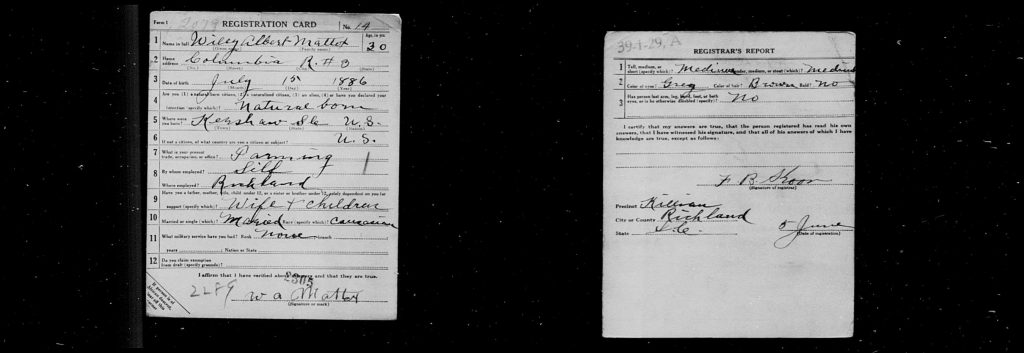 Form 1 2079 REGISTRATION CARD No. 14
1 Name in full Wiley Albert Mattox Age, in yrs. 30
(Given name) (Family name)
2 Home address Columbia R # 3
(No.) (Street) (City) (State)
3 Date of birth July 15 1886
(Month) (Day) (Year)
4 Are you (1) a natural-born citizen, (2) a naturalized citizen, (3) an alien, (4) or have you declared your
intention (specify which)? Natural born
5 Where were you born? Kershaw U.S.
(Town) (State) (Nation)
6 If not a citizen, of what country are you a citizen or subject? U.S.
7 What is your present trade, occupation, or office? Farming 1
8 By whom employed? Self
Where employed? Richland
9 Have you a father, mother, wife, child under 12, or a sister or brother under 12, solely dependent on you for
support (specify which)? Wife + children
10 Married or single (which)? Married Race (specify which)? Caucasian
11 What military service have you had? Rank None branch
years Nation or State
12 Do you claim exemption from draft (specify grounds)?
I affirm that I have verified above answers and that they are true.
W A Mattox
(Signature or mark)
39-1-29, A
REGISTRAR'S REPORT
1 Tall, medium, or short (specify which)? Medium Slender, medium, or stout (which)? Medium
2 Color of eyes? Grey Color of hair? Brown Bald? No
3 Has person lost arm, leg, hand, foot, or both
eyes, or is he otherwise disabled (specify)? No
I certify that my answers are true, that the person registered has read his own
answers, that I have witnessed his signature, and that all of his answers of which I have
knowledge are true, except as follows:
(Signature of registrar)
Precinct Killian
City or County Richland
State S.C. 5 June
(Date of registration)